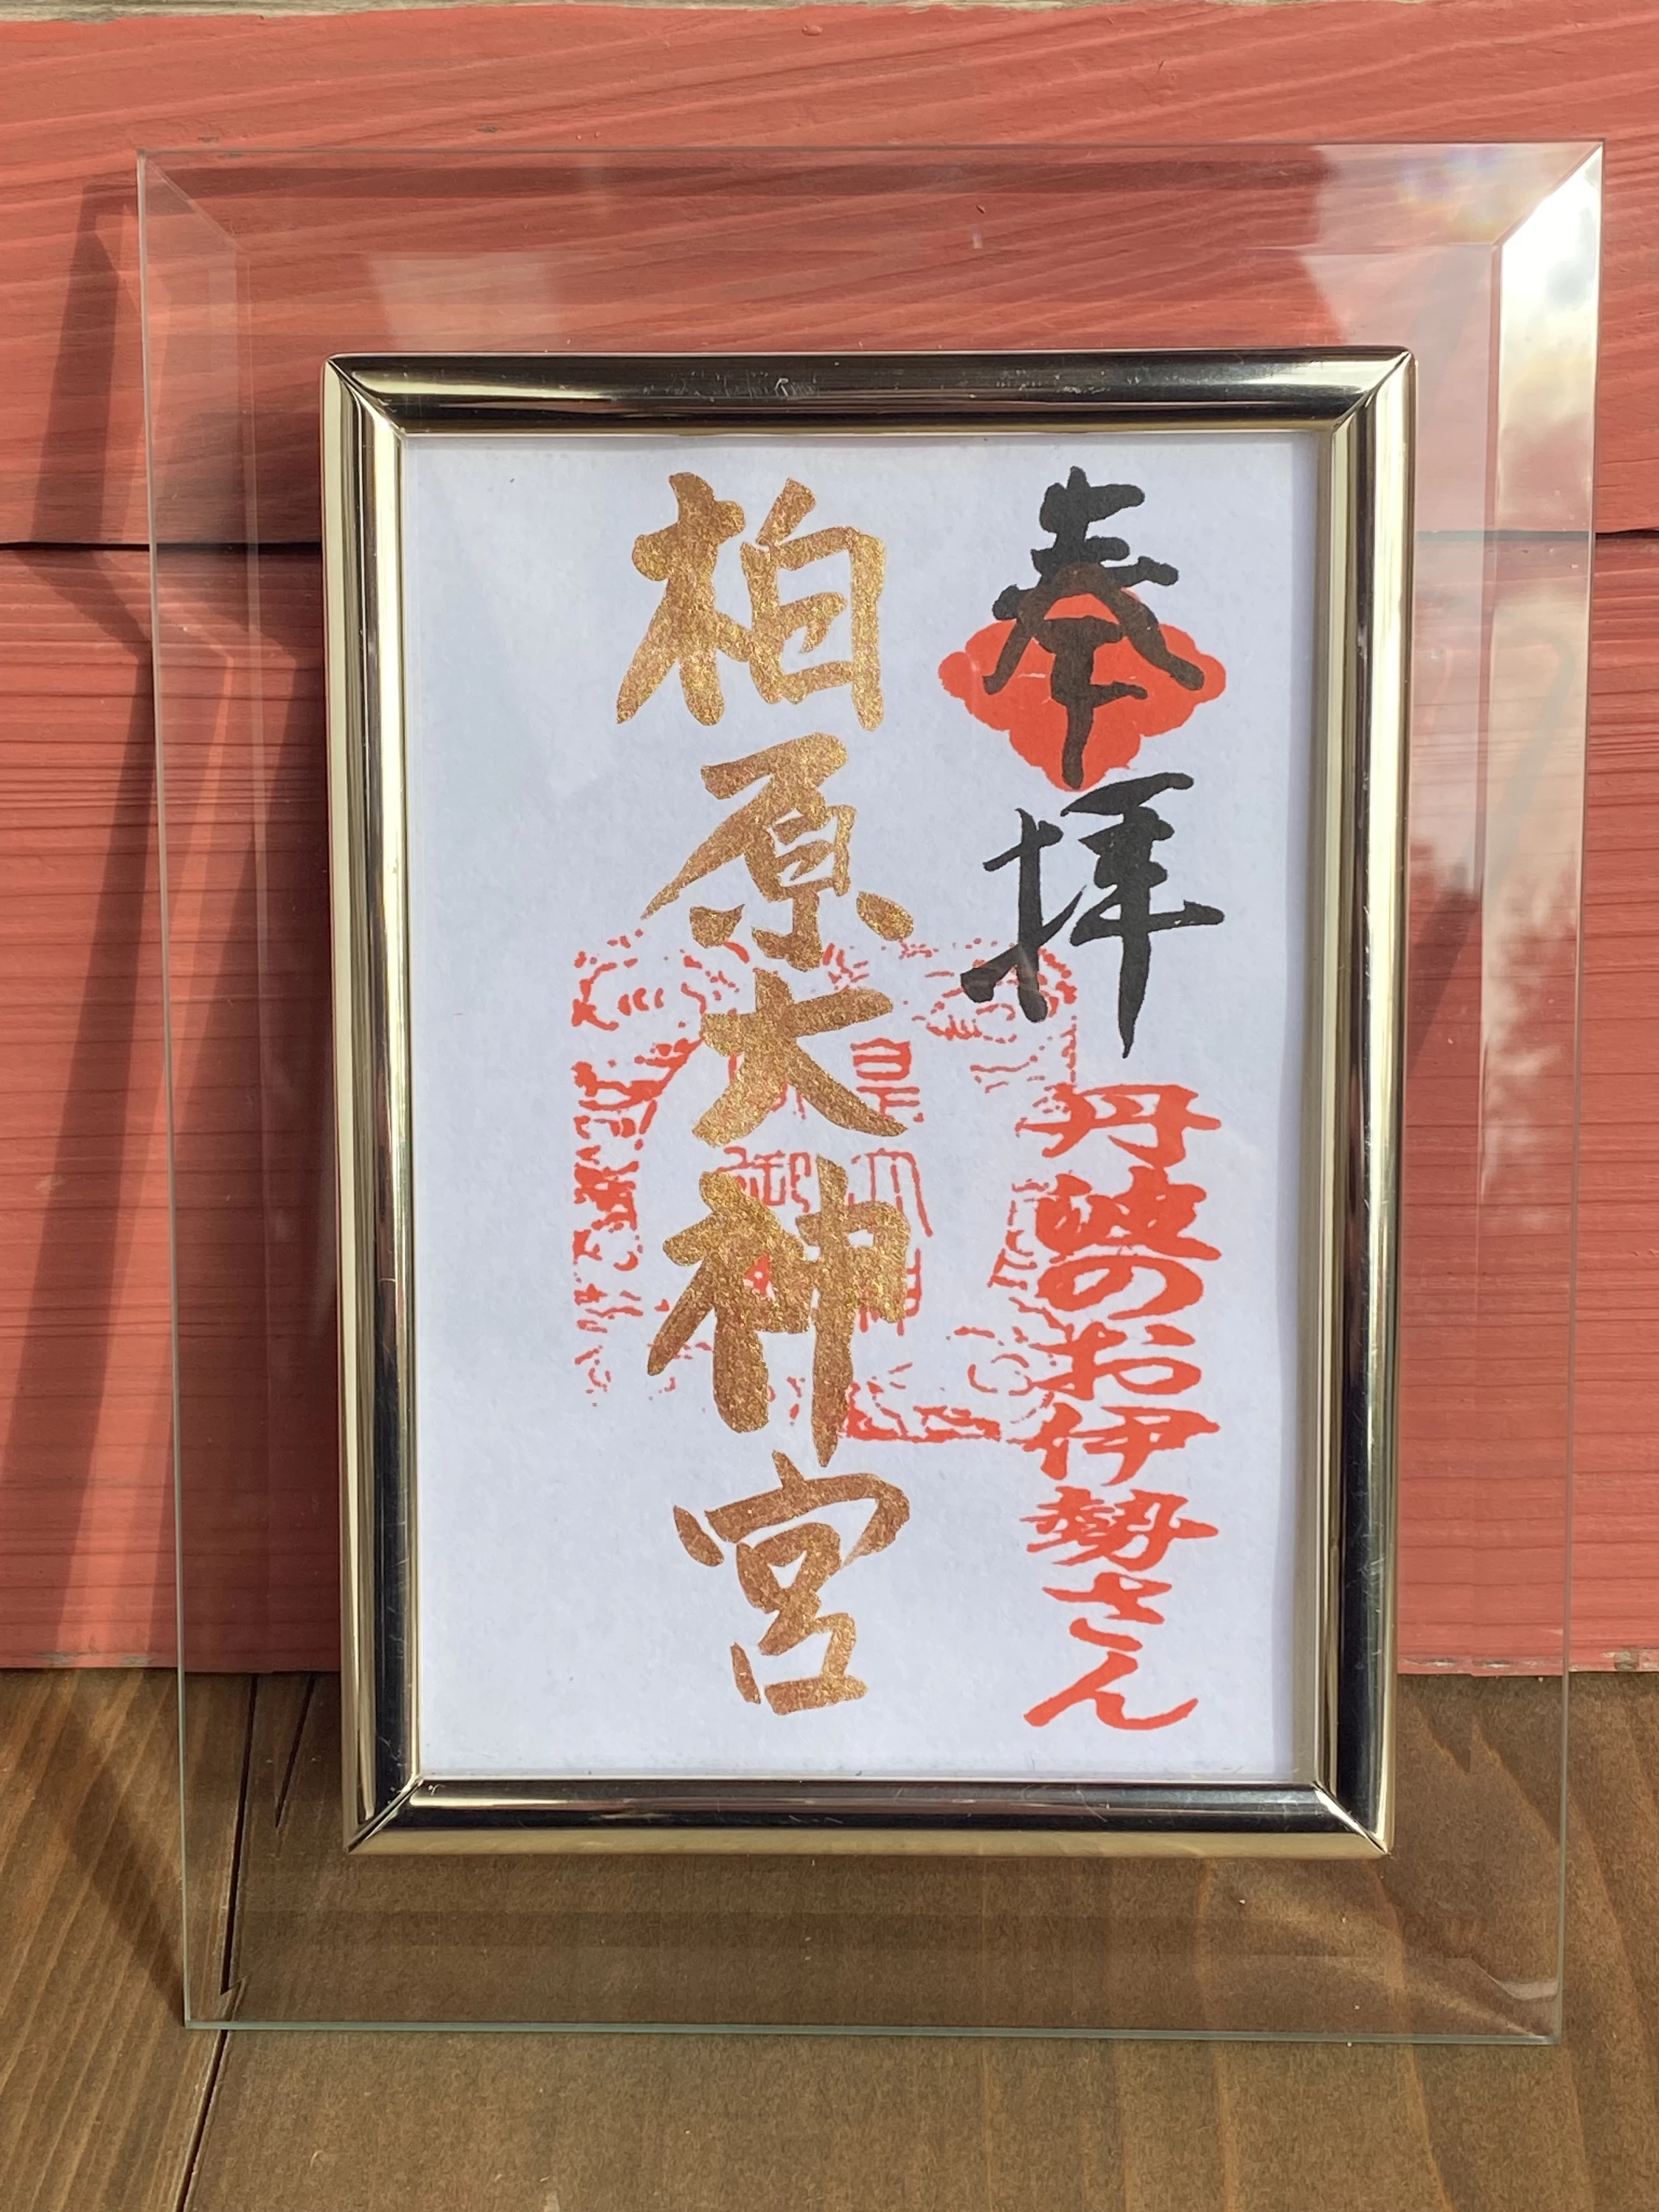 奉拝
丹波のお伊勢さん
柏原大神宮